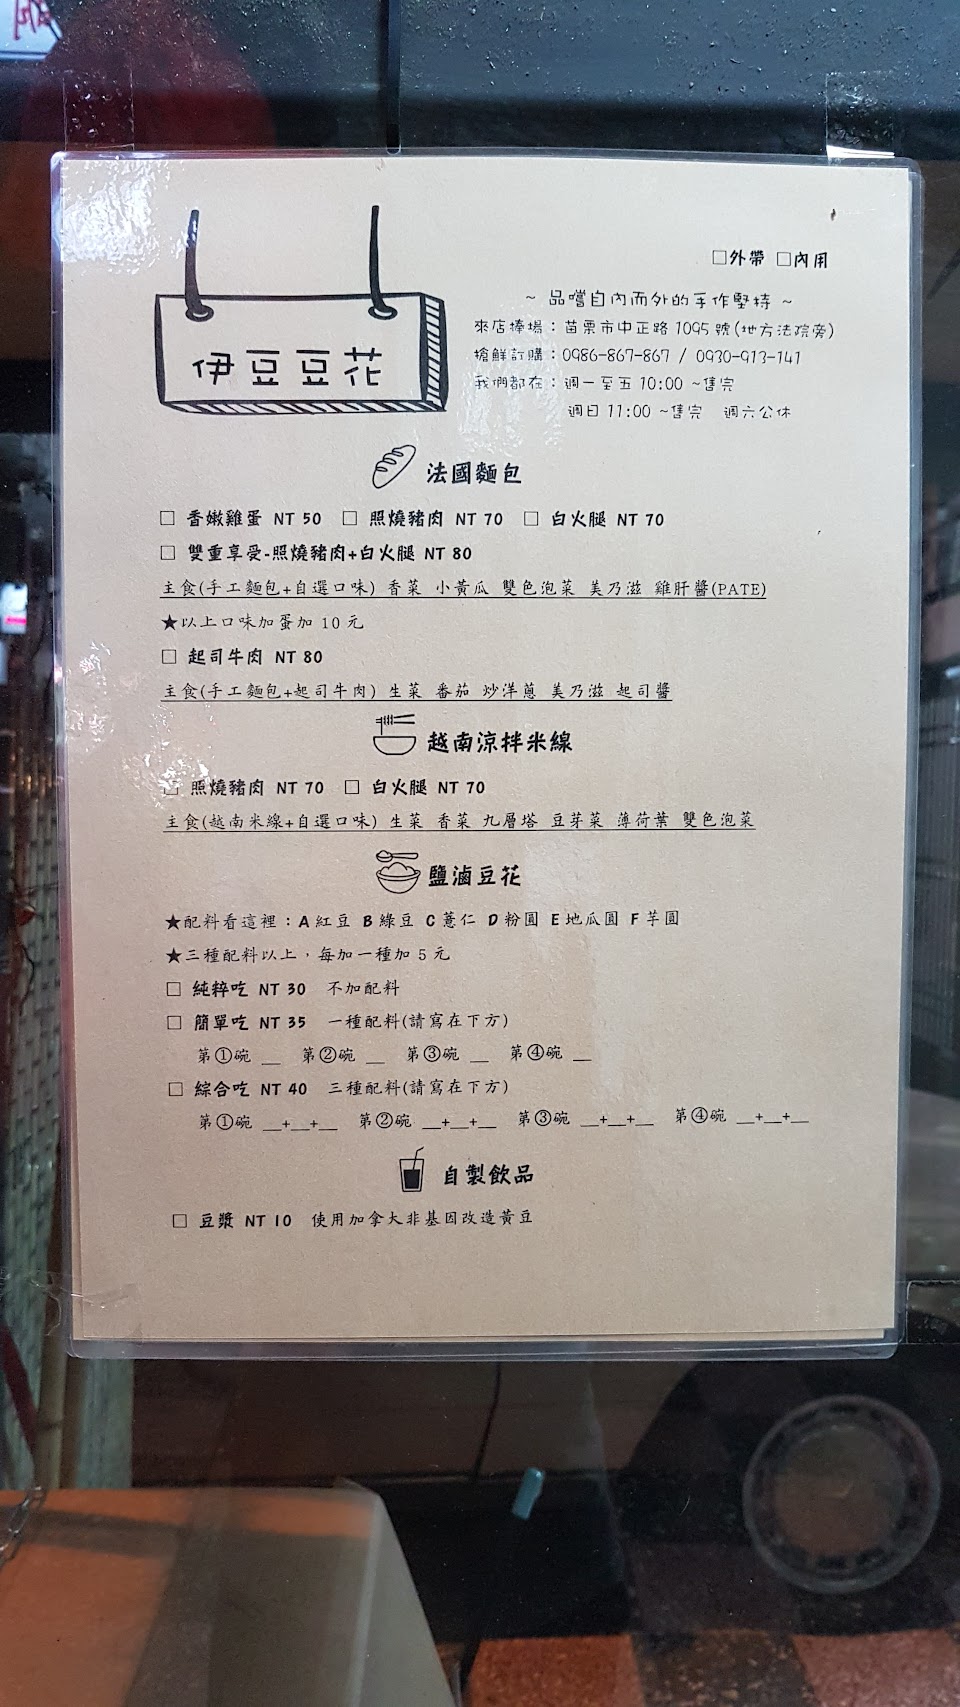 □外帶 □內用
~ 品嚐自內而外的手作堅持 ~
來店捧場：苗栗市中正路 1095 號(地方法院旁)
搶鮮訂購：0986-867-867 / 0930-913-141
我們都在：週一至五 10:00 ~售完
週日 11:00 ~售完 週六公休
伊豆豆花
法國麵包
□ 香嫩雞蛋 NT 50 □ 照燒豬肉 NT 70 □ 白火腿 NT 70
□ 雙重享受-照燒豬肉+白火腿 NT 80
主食(手工麵包+自選口味) 香菜 小黃瓜 雙色泡菜 美乃滋 雞肝醬(PATE)
★以上口味加蛋加 10 元
□ 起司牛肉 NT 80
主食(手工麵包+起司牛肉) 生菜 番茄 炒洋蔥 美乃滋 起司醬
越南涼拌米線
□ 照燒豬肉 NT 70 □ 白火腿 NT 70
主食(越南米線+自選口味) 生菜 香菜 九層塔 豆芽菜 薄荷葉 雙色泡菜
鹽滷豆花
★配料看這裡：A 紅豆 B 綠豆 C 薏仁 D 粉圓 E 地瓜圓 F 芋圓
★三種配料以上，每加一種加 5 元
□ 純粹吃 NT 30 不加配料
□ 簡單吃 NT 35 一種配料(請寫在下方)
第①碗 __ 第②碗 __ 第③碗 __ 第④碗 __
□ 綜合吃 NT 40 三種配料(請寫在下方)
第①碗 __+__+__ 第②碗 __+__+__ 第③碗 __+__+__ 第④碗 __+__+__
自製飲品
□ 豆漿 NT 10 使用加拿大非基因改造黃豆